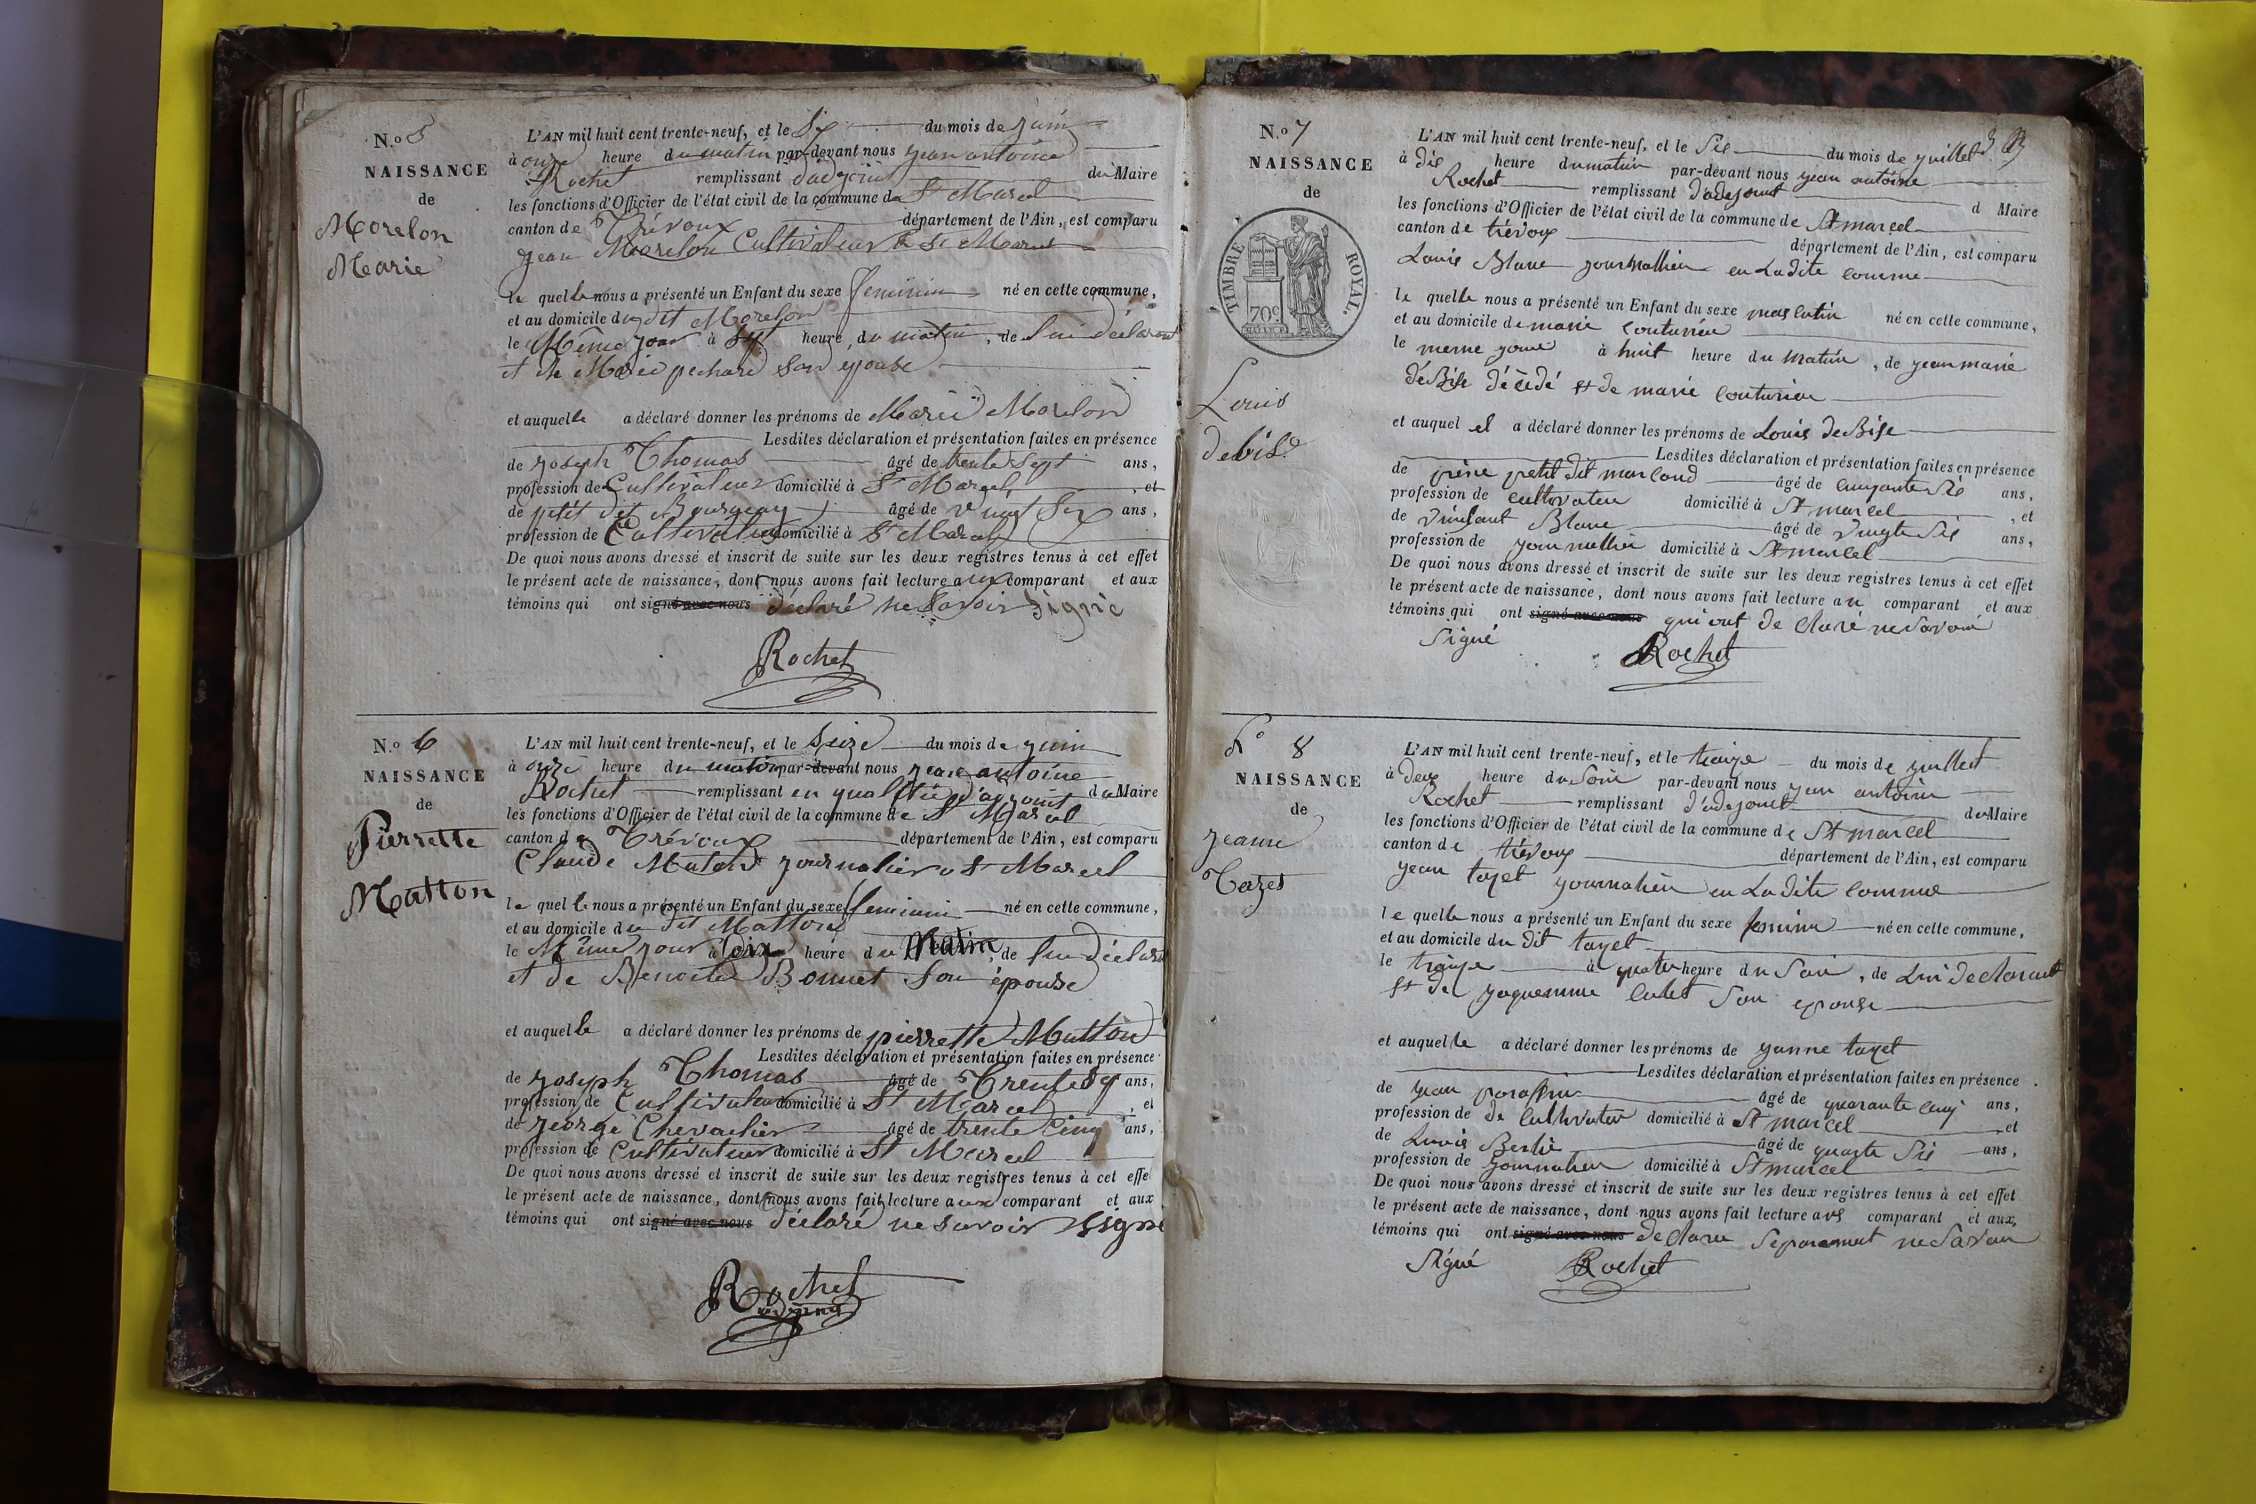 N.o 5
NAISSANCE
de
Morelon
Marie
L'AN mil huit cent trente-neuf, et le six du mois de juin
à onze heure du matin par-devant nous jean antoine
Rochet remplissant d'adjoint du Maire
les fonctions d'Officier de l'état civil de la commune de St Marcel
canton de Trévoux département de l'Ain, est comparu
jean Morelon Cultivateur St Marcel
le quel le nous a présenté un Enfant du sexe feminin né en cette commune,
et au domicile du dit Morelon
le Même jour à heure, du matin, de lui déclarant
et de Marie pechard son epouse
et auquel le a déclaré donner les prénoms de Marie Morelon
Lesdites déclaration et présentation faites en présence
de joseph Thomas âgé de trente sept ans,
profession de Cultivateur domicilié à St Marcel, et
de petit dit Bourgeay âgé de vingt six ans,
profession de Cultivateur domicilié à St Marcel
De quoi nous avons dressé et inscrit de suite sur les deux registres tenus à cet effet
le présent acte de naissance, dont nous avons fait lecture aux comparant et aux
témoins qui ont signé avec nous déclaré ne savoir signé
Rochet
N.o 6
NAISSANCE
de
Pierrette
Matton
L'AN mil huit cent trente-neuf, et le seize du mois de juin
à onze heure du matin par-devant nous jean antoine
Rochet remplissant en qualité d'adjoint du Maire
les fonctions d'Officier de l'état civil de la commune de St Marcel
canton de Trévoux département de l'Ain, est comparu
Claude Maton journalier a St Marcel
le quel le nous a présenté un Enfant du sexe feminin né en cette commune,
et au domicile du dit Matton
le Même jour à heure du Matin, de lui déclara
et de Benoite Bonnet son épouse
et auquel le a déclaré donner les prénoms de pierrette Matton
Lesdites déclaration et présentation faites en présence
de joseph Thomas âgé de Trente ans,
profession de Cultivateur domicilié à St Marcel, et
de george Chevalier âgé de trente Cinq ans,
profession de Cultivateur domicilié à St Marcel
De quoi nous avons dressé et inscrit de suite sur les deux registres tenus à cet effe
le présent acte de naissance, dont nous avons fait lecture aux comparant et aux
témoins qui ont signé avec nous déclaré ne savoir signé
Rochet
N.o 7
NAISSANCE
de
TIMBRE ROYAL.
70c
Louis
debise
L'AN mil huit cent trente-neuf, et le sis du mois de juillet
à dis heure du matin par-devant nous jean antoine
Rochet remplissant d'adejount d Maire
les fonctions d'Officier de l'état civil de la commune de St marcel
canton de trévoux département de l'Ain, est comparu
Louis Blanc journallier en La dite comme
le quel le nous a présenté un Enfant du sexe masculin né en cette commune,
et au domicile de marie couturier
le meme jour à huit heure du matin, de jean marie
deBise décédé et de marie couturier
et auquel el a déclaré donner les prénoms de Louis deBise
Lesdites déclaration et présentation faites en présence
de petit dit âgé de cinquante sis ans,
profession de cultivateur domicilié à St marcel, et
de vincent Blanc âgé de vingte sis ans,
profession de journallier domicilié à St marcel
De quoi nous avons dressé et inscrit de suite sur les deux registres tenus à cet effet
le présent acte de naissance, dont nous avons fait lecture au comparant et aux
témoins qui ont signé avec nous qui ont de claré ne savoir
signé
Rochet
No 8
NAISSANCE
de
jeanne
Tazet
L'AN mil huit cent trente-neuf, et le traize du mois de juillet
à deux heure du soir par-devant nous jean antoine
Rochet remplissant d'adejount du Maire
les fonctions d'Officier de l'état civil de la commune de St marcel
canton de trévoux département de l'Ain, est comparu
jean tazet journalier en La dite commue
le quel le nous a présenté un Enfant du sexe feminin né en cette commune,
et au domicile du dit tazet
le traize à quater heure du soir, de Lui declarant
et de jaquemme son epouse
et auquel le a déclaré donner les prénoms de janne tazet
Lesdites déclaration et présentation faites en présence
de jean âgé de quarante cinq ans,
profession de de cultivateur domicilié à St marcel, et
de Louis âgé de sis ans,
profession de journalier domicilié à St marcel
De quoi nous avons dressé et inscrit de suite sur les deux registres tenus à cet effet
le présent acte de naissance, dont nous avons fait lecture aus comparant et aux
témoins qui ont signé avec nous declaré separement ne savoir
signé
Rochet